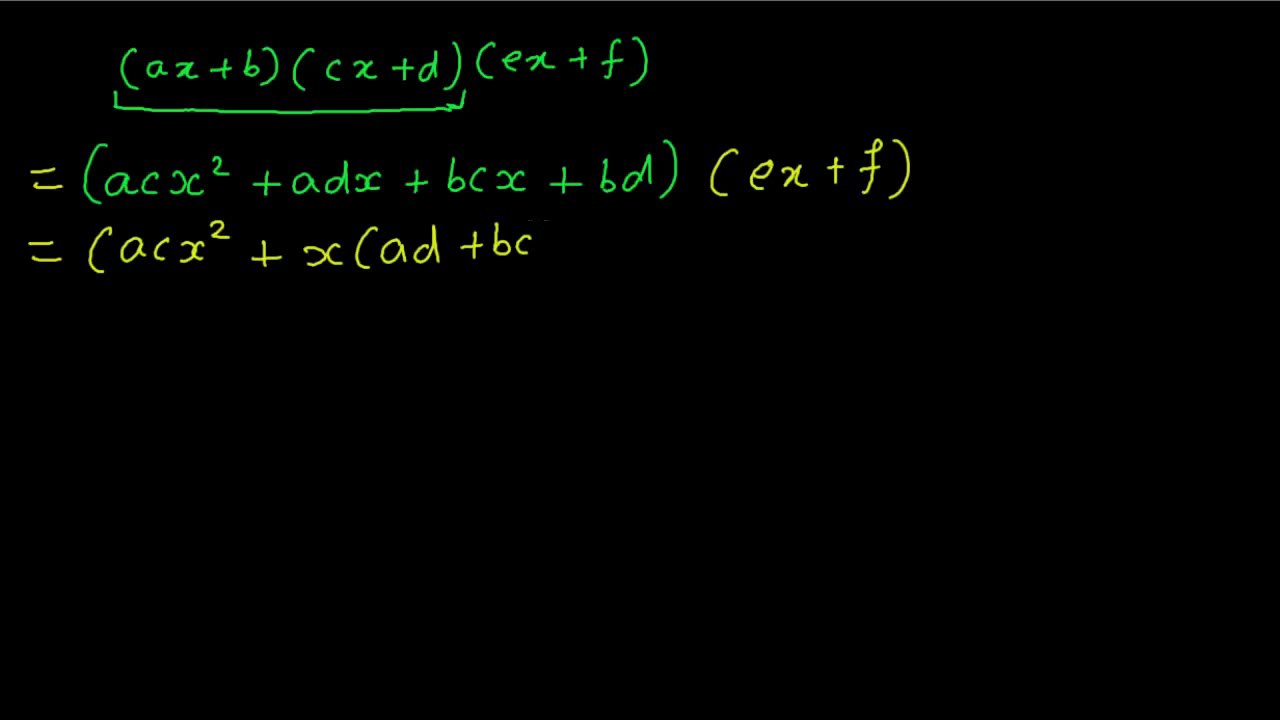 (ax+b)(cx+d)(ex+f)
= (acx² + adx + bcx + bd) (ex+f)
= (acx² + x(ad +bc